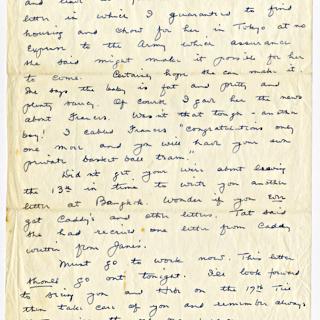 letter in which I guaranteed to find
housing and chow for her in Tokyo at no
expense to the Army which assurance
she said might make it possible for her
to come. Certainly hope she can make it.
She says the baby is fat and pretty and
plenty saucy. Of course I gave her the news
about Francis. Wasn't that tough - another
boy! I cabled Francis "Congratulations only
one more and you will have your own
private basket ball team".
Did not get your wire about leaving
the 13th in time to write you another
letter at Bangkok. Wonder if you ever
got Caddy's and other letters. Tat said
she had received one letter from Caddy
written from
Must go to work now. This letter
should go out tonight. I'll look forward
to seeing you and on the 19th. Till
then take care of you and remember always